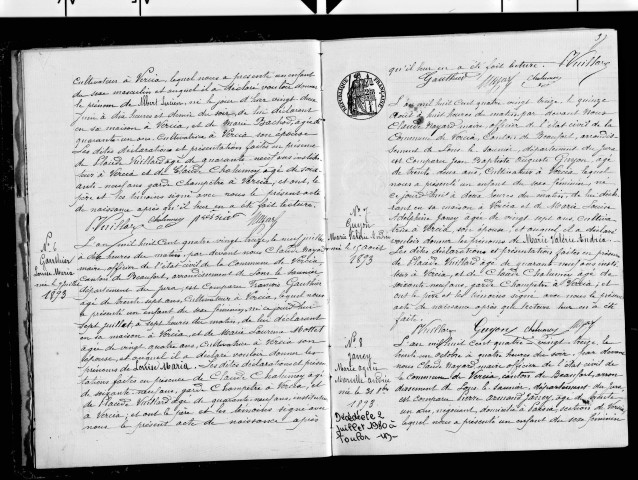 Cultivateur à Vercia, lequel nous a présenté un enfant
du sexe masculin et auquel il a déclaré vouloir donner
le prénom de Lucien, né le jour d'hier vingt deux
juin à dix heures du soir, de lui déclarant
en sa maison à Vercia et de Marie Bachod, âgée de
quarante un ans, Cultivatrice à Vercia son épouse
Les dites déclarations et présentation faites en présence
de Placide Vuillard âgé de quarante neuf ans institu
teur à Vercia et de Claude Chalumey âgé de soix
ante neuf ans garde champêtre à Vercia, et ont, le
père et les témoins signé avec nous le présent acte
de naissance après qu'il leur en a été fait lecture.
Vuillard Chalumey
N° 6
Gauthier
Louise Maria
née le 7 juillet
1893
L'an mil huit cent quatre vingt treize, le neuf juillet
à dix heures du matin, par devant nous Claude Mayard
maire officier de l'état civil de la Commune de Vercia,
canton de Beaufort, arrondissement de Lons le Saunier
département du Jura, est comparu François Gauthier
âgé de trente sept ans, Cultivateur à Vercia, lequel nous
a présenté un enfant du sexe féminin, né ce jourd'hui
sept juillet, à sept heures du matin, de lui déclarant
en sa maison à Vercia et de Marie Laurine Mottet
âgée de vingt quatre ans, Cultivatrice à Vercia son
épouse, et auquel il a déclaré vouloir donner les
prénoms de Louise Maria. Les dites déclaration et présen
tations faites en présence de Claude Chalumey âgé
de soixante neuf ans, garde champêtre à Vercia, et
de Placide Vuillard âgé de quarante neuf ans, instituteur
à Vercia, et ont le père et les témoins signé avec
nous le présent acte de naissance après
qu'il leur en a été fait lecture. Vuillard
Gauthier Chalumey
N° 7
Guyon
Marie Valérie Andréa
née le 15 août
1893
L'an mil huit cent quatre vingt treize, le quinze
août à huit heures du matin, par devant Nous
Claude Mayard maire officier de l'état civil de la
Commune de Vercia, Canton de Beaufort, arrondis
sement de Lons le Saunier, département du Jura
est Comparu Jean Baptiste Auguste Guyon, âgé
de trente deux ans, Cultivateur à Vercia, lequel
nous a présenté un enfant du sexe féminin, né
ce jourd'hui à deux heures du matin, de lui décla
rant en sa maison à Vercia et de Marie Louise
Adelphine Jancy âgée de vingt sept ans, Cultiva
trice à Vercia, son épouse, et auquel il a déclaré
vouloir donner les prénoms de Marie Valérie Andréa.
Les dites déclarations et présentation faites en présence
de Placide Vuillard âgé de quarante neuf ans, institu
teur à Vercia, et de Claude Chalumey âgé de
soixante neuf ans, garde champêtre à Vercia; et
ont le père et les témoins signé avec nous le présent
acte de naissance après que lecture leur en a été
faite.
Vuillard Guyon Chalumey
N° 8
Jancy
née le 31 8bre
1893
Décédée le 2
juillet 1980 à
Toulon
L'an mil huit cent quatre vingt treize, le
trente un octobre à quatre heures du soir, par devant
nous Claude Mayard, maire officier de l'état civil de
la commune de Vercia, canton de Beaufort, arron
dissement de Lons le Saunier, département du Jura
est comparu Pierre Armand Jancy, âgé de trente
un ans, négociant, domicilié à section de Vercia,
lequel nous a présenté un enfant du sexe féminin